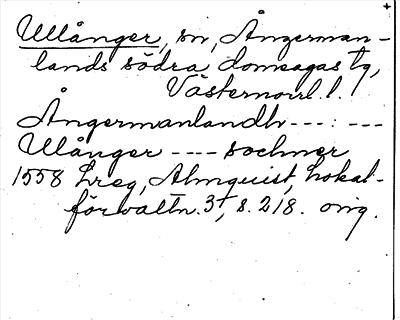 Ullånger, sn, Ångerman-
lands södra domsagas tg,
Västernorrl. l.
Ångermanlandh ---:---
Ulånger ---- sochner
1558 Lreg, Almquist, Lokal-
förvaltn. 3, s. 218. orig.